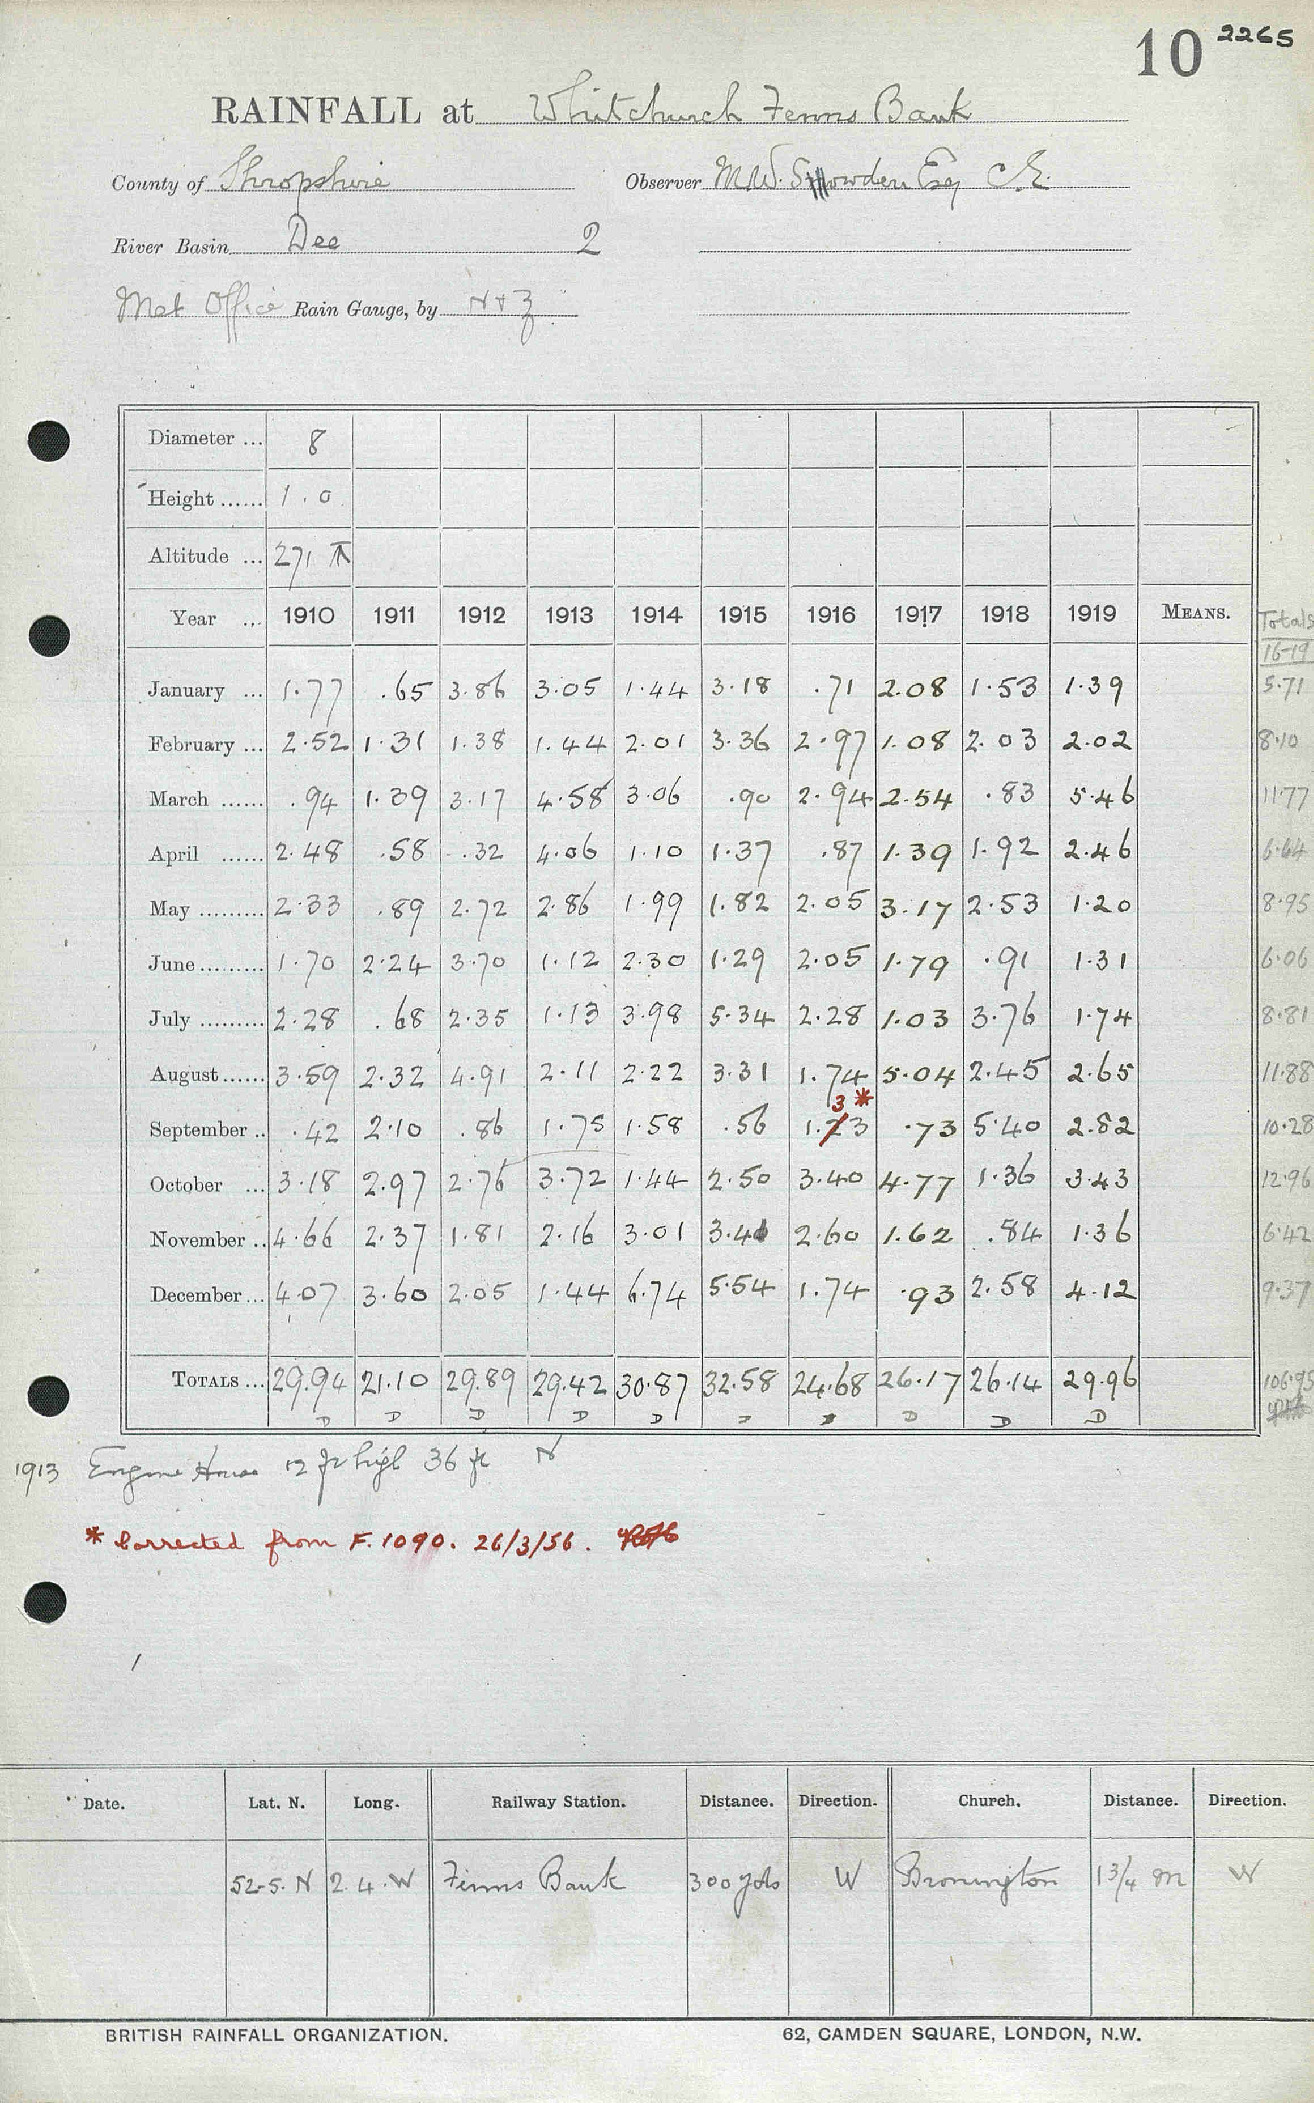 10 2265
RAINFALL at Whitchurch Fenns Bank
County of Shropshire Observer M.W. Snowden Esq C.E.
River Basin Dee 2
Met Office Rain Gauge, by N+Z
Diameter ... 8
Height ...... 1.0
Altitude ... 271
Year ... 1910 1911 1912 1913 1914 1915 1916 1917 1918 1919 MEANS. Totals
16-19
January ... 1.77 .65 3.86 3.05 1.44 3.18 .71 2.08 1.53 1.39 5.71
February ... 2.52 1.31 1.38 1.44 2.01 3.36 2.97 1.08 2.03 2.02 8.10
March ...... .94 1.39 3.17 4.58 3.06 .90 2.94 2.54 .83 5.46 11.77
April ...... 2.48 .58 .32 4.06 1.10 1.37 .87 1.39 1.92 2.46 6.64
May ......... 2.33 .89 2.72 2.86 1.99 1.82 2.05 3.17 2.53 1.20 8.95
June ......... 1.70 2.24 3.70 1.12 2.30 1.29 2.05 1.79 .91 1.31 6.06
July ......... 2.28 .68 2.35 1.13 3.98 5.34 2.28 1.03 3.76 1.74 8.81
August ...... 3.59 2.32 4.91 2.11 2.22 3.31 1.74 5.04 2.45 2.65 11.88
3 *
September .. .42 2.10 .86 1.75 1.58 .56 1.23 .73 5.40 2.82 10.28
October ... 3.18 2.97 2.76 3.72 1.44 2.50 3.40 4.77 1.36 3.43 12.96
November .. 4.66 2.37 1.81 2.16 3.01 3.41 2.60 1.62 .84 1.36 6.42
December ... 4.07 3.60 2.05 1.44 6.74 5.54 1.74 .93 2.58 4.12 9.37
TOTALS ... 29.94 21.10 29.89 29.42 30.87 32.58 24.68 26.17 26.14 29.96 106.95
D D D D D D D D
1913 Engine House 12 ft high 36 ft N
* Corrected from F.1090. 26/3/56.
Date. Lat. N. Long. Railway Station. Distance. Direction. Church. Distance. Direction.
52-5. N 2.4.W Fenns Bank 300 yds W Bronington 1 3/4 m W
BRITISH RAINFALL ORGANIZATION. 62, CAMDEN SQUARE, LONDON, N.W.